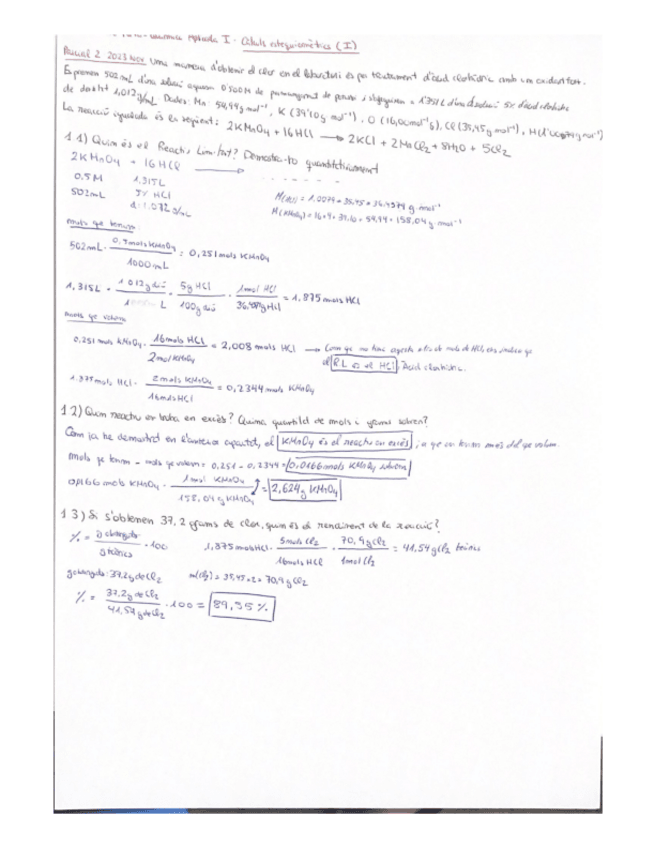 Química Aplicada I - Càlculs estequiomètrics (I)
Parcial 2 2023 Nov Una manera d'obtenir el clor en el laboratori és pa tractament d'àcid clorhídric amb un oxidant fort.
Es prenen 502 mL d'una solució aquosa 0,500 M de permanganat de potassi i s'afegeixen 1,315 L d'una dissolució 5% d'àcid clorhídric
de densitat 1,012 g/mL. Dades: Mn: 54,94 g mol⁻¹, K (39,10 g mol⁻¹), O (16,00 mol⁻¹ g), Cl (35,45 g mol⁻¹), H (1,0079 g mol⁻¹)
La reacció igualada és la següent: 2KMnO₄ + 16HCl → 2KCl + 2MnCl₂ + 8H₂O + 5Cl₂
1.1) Quin és el Reactiu Limitant? Demostra-ho quantitativament
2KMnO₄ + 16HCl → - - - - - -
0,5M 1,315L
502mL 5% HCl M(HCl) = 1,0079 + 35,45 = 36,4579 g·mol⁻¹
d=1.012 g/mL M(KMnO₄) = 16·4 + 39,10 + 54,94 = 158,04 g·mol⁻¹
mols que tenim
502mL · 0,5 mols KMnO₄ / 1000mL = 0,251 mols KMnO₄
1,315L · 1012g dió / L · 5g HCl / 100g dió · 1mol HCl / 36,4579g HCl = 1,875 mols HCl
mols que volem
0,251 mols KMnO₄ · 16mols HCl / 2mol KMnO₄ = 2,008 mols HCl → Com que no tinc aquesta mols de HCl,
el RL és el HCl, Àcid clorhídric.
1.875 mols HCl · 2mols KMnO₄ / 16mols HCl = 0,2344 mols KMnO₄
1.2) Quin reactiu es troba en excés? Quina quantitat de mols i grams sobren?
Com ja he demostrat en l'anterior apartat, el KMnO₄ és el reactiu en excés, ja que en tenim més del que volem.
mols que tenim - mols que volem = 0,251 - 0,2344 = 0,0166 mols KMnO₄ sobren
0,0166 mols KMnO₄ · 1mol KMnO₄ / 158,04g KMnO₄ = 2,624g KMnO₄
1.3) Si s'obtenen 37,2 grams de clor, quin és el rendiment de la reacció?
% = g obtinguts / g teòrics · 100 1,875 mols HCl · 5mols Cl₂ / 16mols HCl · 70,9g Cl₂ / 1mol Cl₂ = 41,54g Cl₂ teòrics
g obtinguts: 37.2g de Cl₂ m(Cl₂) = 35,45 × 2 = 70,9g Cl₂
% = 37.2g de Cl₂ / 41,54g de Cl₂ · 100 = 89,55%